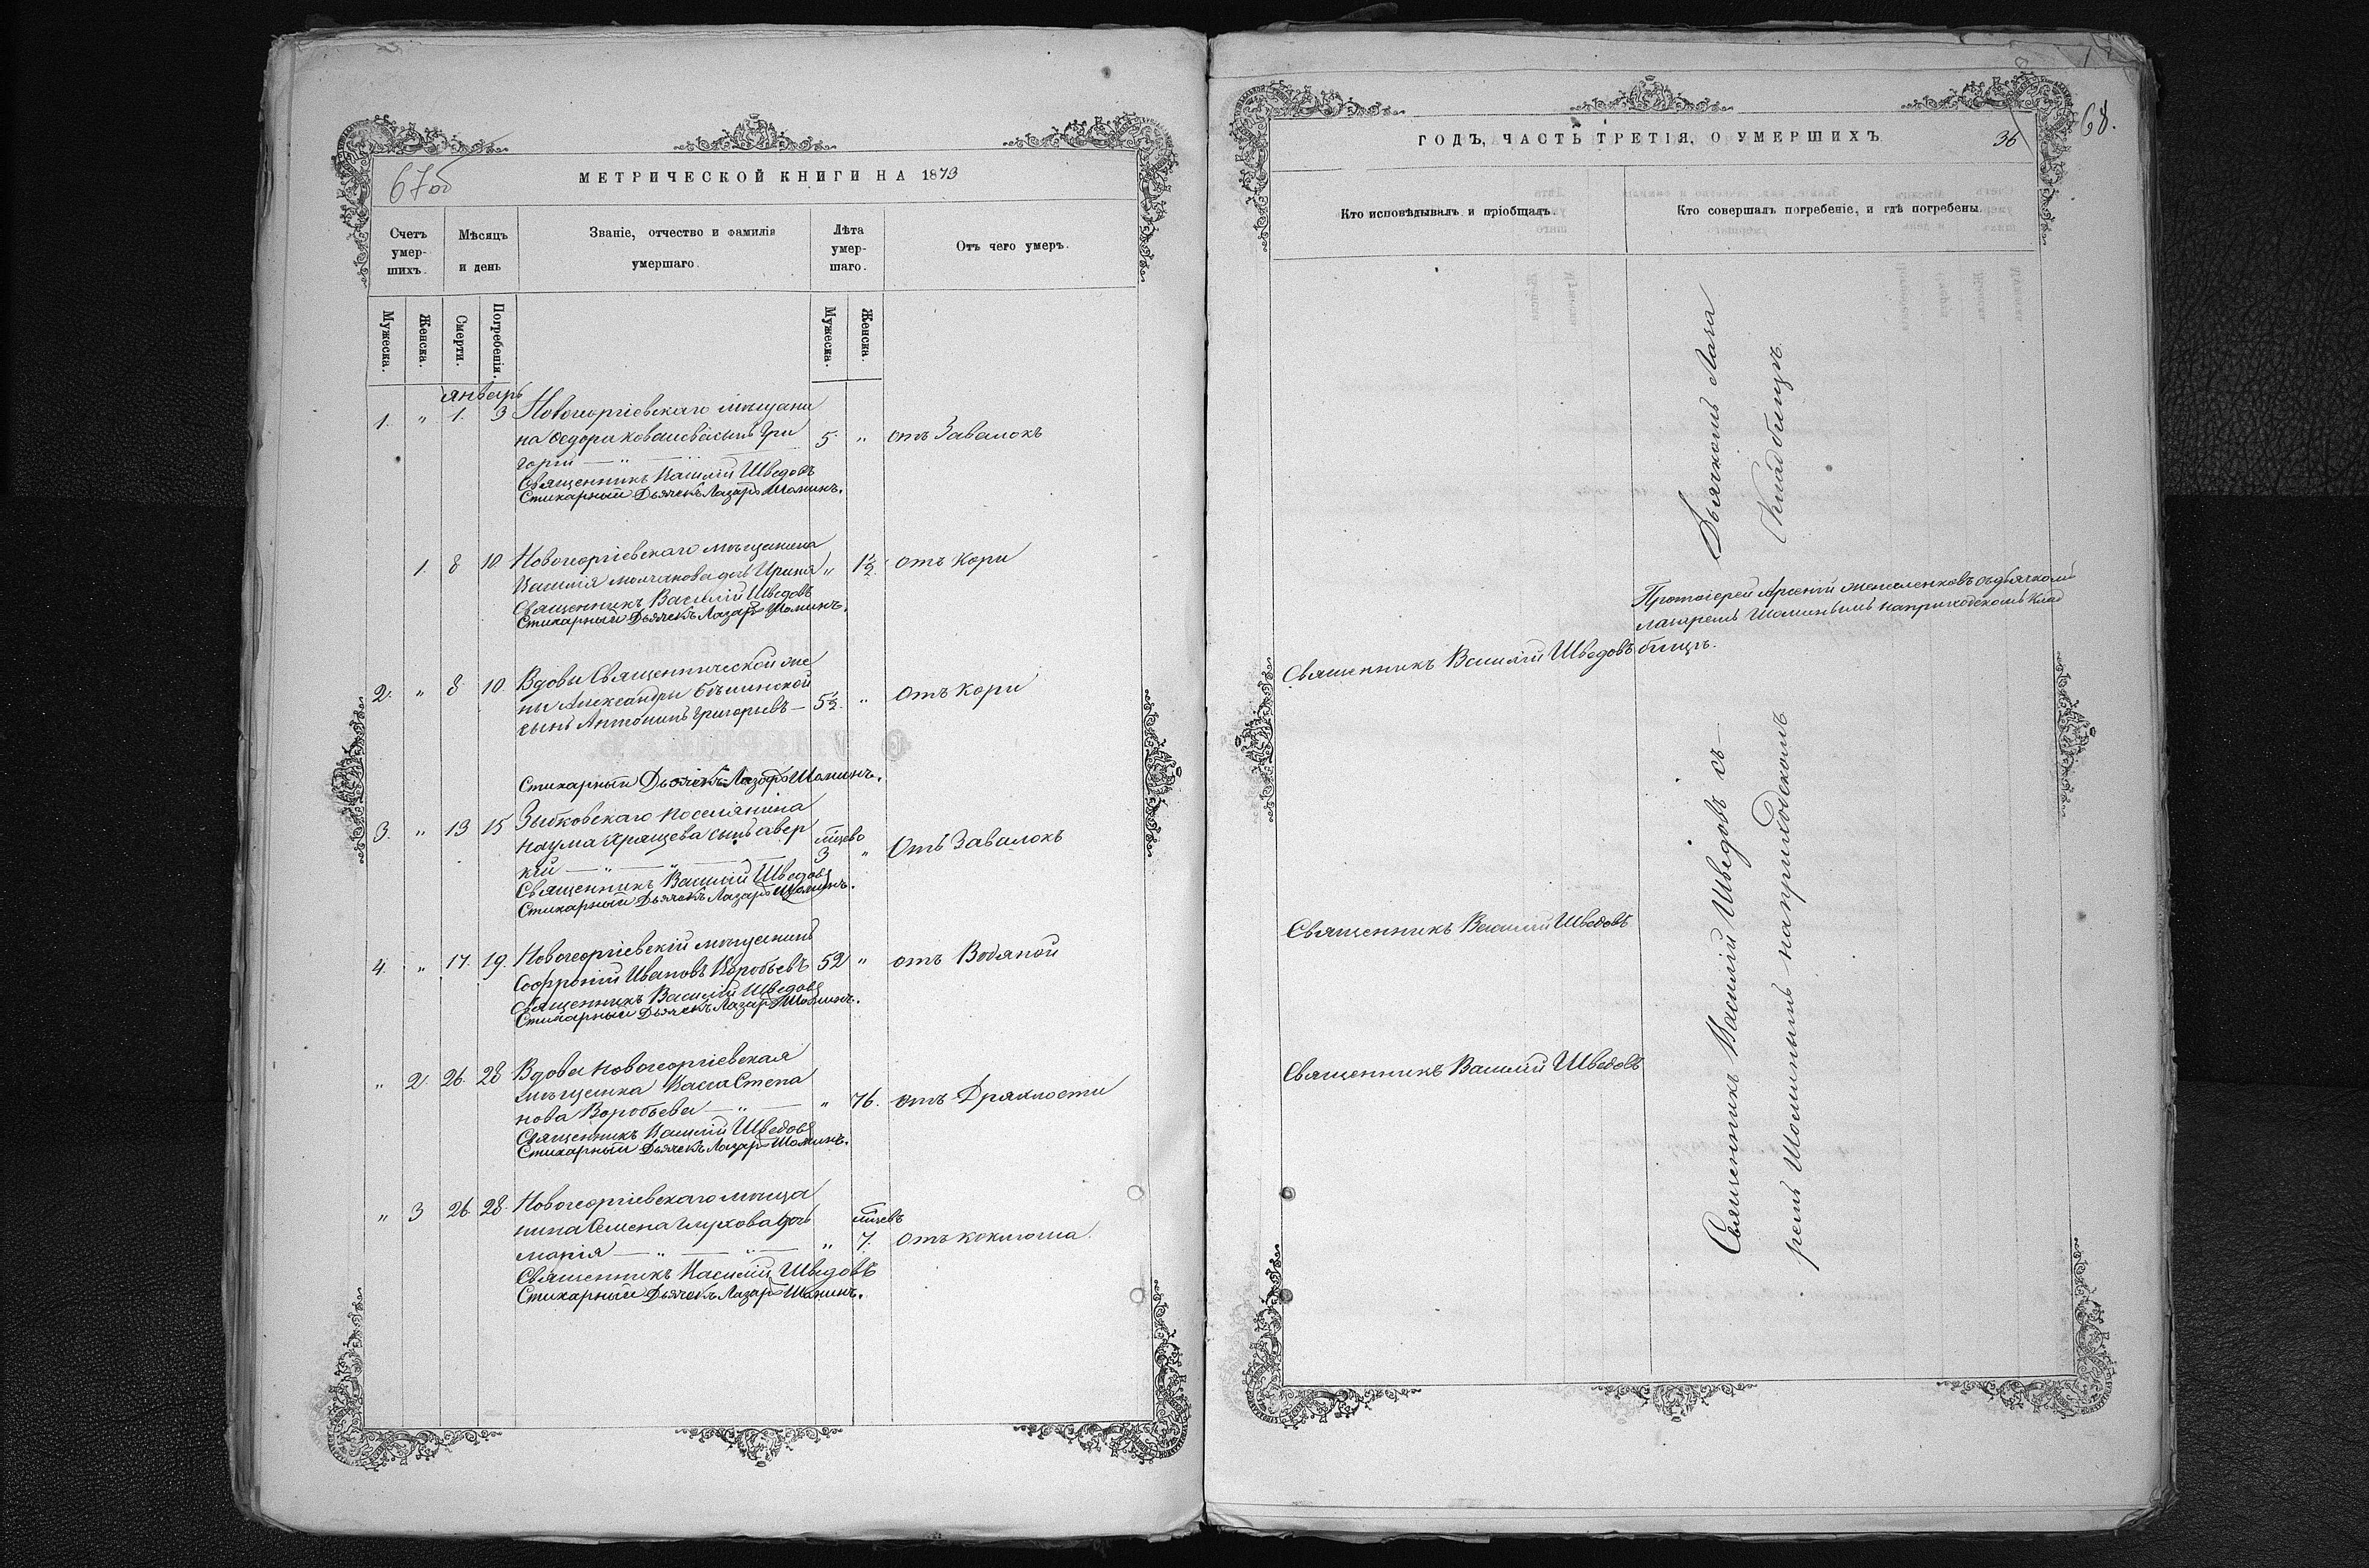 67об
МЕТРИЧЕСКОЙ КНИГИ НА 1873
Счетъ умер-шихъ.
Мѣсяцъ и день
Званіе, отчество и фамилія умершаго.
Лѣта умер-шаго.
Отъ чего умеръ.
Мужеска.
Женска.
Смерти.
Погребенія.
Мужеска.
Женска.
январь
1. " 1. 3 Новогеоргіевскаго мѣщани
на Ѳедора Ковалева сынъ Гри 5. " отъ Завалокъ
горій — " —
Священникъ Василій Шведовъ
Стихарный Дьячекъ Лазарь Шоминъ.
1. 8 10 Новогеоргіевскаго мѣщанина
Василія Молчанова дочь Ирина " 1½ отъ Кори
Священникъ Василій Шведовъ
Стихарный Дьячекъ Лазарь Шоминъ.
2. " 8 10. Вдовы Священнической же
ны Александры Бѣлинской
сынъ Антонинъ Григорьевъ — 5½. " Отъ Кори
Стихарный Дьячекъ Лазарь Шоминъ.
3. " 13 15 Зыбковскаго поселянина
Наума Хрящева сынъ Авер мѣсяцевъ
кій — " — 3 " Отъ Завалокъ
Священникъ Василій Шведовъ
Стихарный Дьячекъ Лазарь Шоминъ.
4. " 17. 19. Новогеоргіевскій мѣщанинъ
Софроній Ивановъ Воробьевъ 52 " отъ Водяной
Священникъ Василій Шведовъ
Стихарный Дьячекъ Лазарь Шоминъ.
" 2 26. 28 Вдова Новогеоргіевская
мѣщанка Васса Степа
нова Воробьева — " — " 76. отъ Дряхлости
Священникъ Василій Шведовъ
Стихарный Дьячекъ Лазарь Шоминъ.
" 3 26. 28. Новогеоргіевскаго мѣща
нина Семена Глухова дочь
Марія — " — " — " 7. отъ коклюша.
Священникъ Василій Шведовъ
Стихарный Дьячекъ Лазарь Шоминъ.
ГОДЪ, ЧАСТЬ ТРЕТІЯ, О УМЕРШИХЪ.
36
68.
Кто исповѣдывалъ и пріобщалъ.
Кто совершалъ погребеніе, и гдѣ погребены.
Протоіерей Арсеній съ дьячкомъ
Лазаремъ Шоминымъ на приходскомъ Клад
бищѣ.
Священникъ Василій Шведовъ
Священникъ Василій Шведовъ
Священникъ Василій Шведовъ
Священникъ Василій Шведовъ съ — Дьячкомъ Лаза
ремъ Шоминымъ на приходскомъ Кладбищѣ.